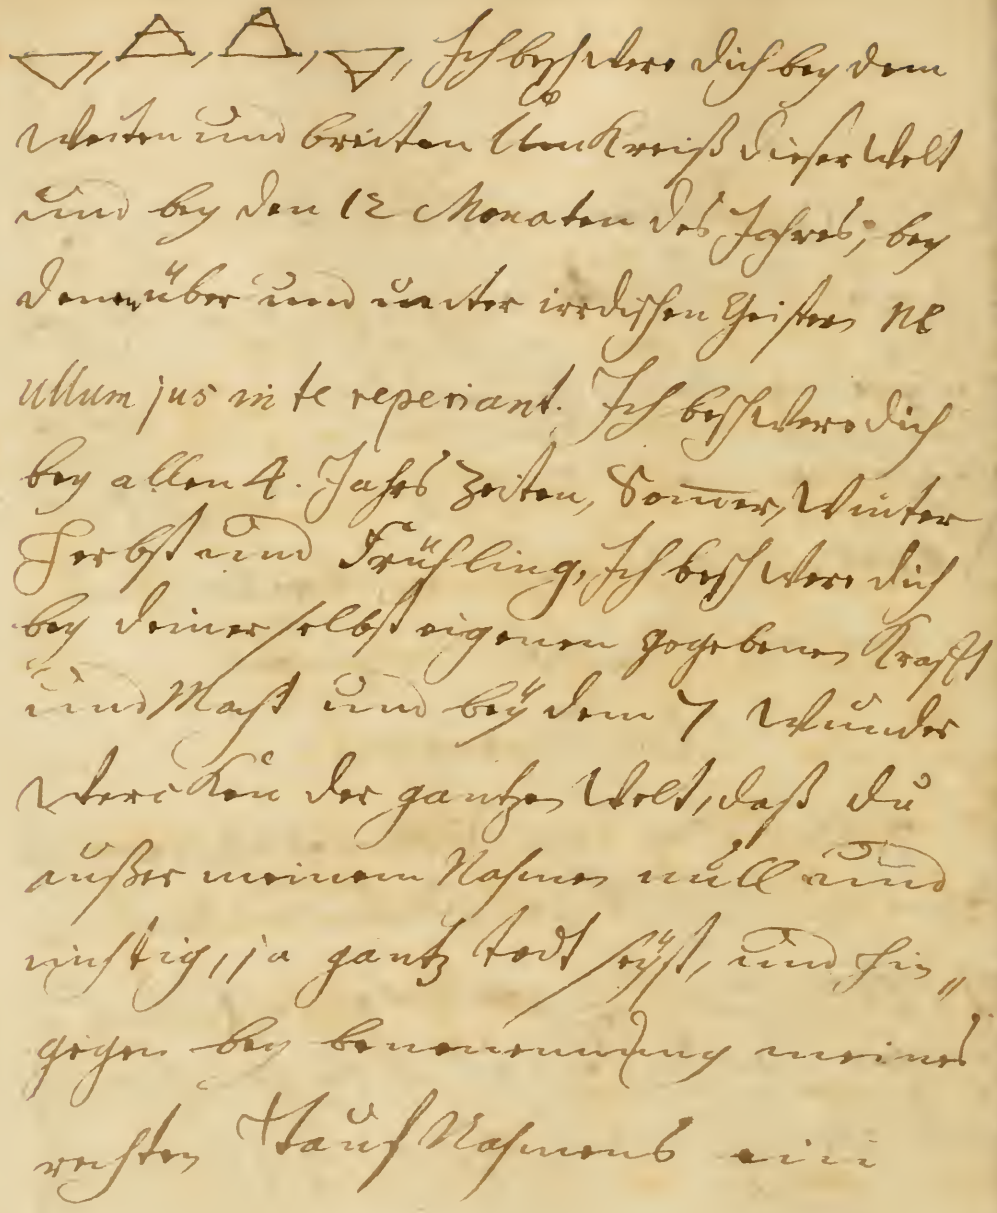 🜃, 🜁, 🜁, 🜃, Ich beschwere dich bey dem
Weiten und breiten Umkreiß dieser Welt
und bey den 12 Monaten des Jahres, bey
denen über und unter irrdischen Geistern Ne
ullum jus in te reperiant. Ich beschwere dich
bey allen 4. Jahrs Zeiten, Som̅er, Winter
Herbst und Frühling, Ich beschwere dich
bey deiner selbst eigenen gegebenen Krafft
und Macht und beÿ dem 7 Wunder
Wercken der gantzen Welt, daß du
außer meinem Nahmen null und
nichtig, ja gantz todt seÿst, und hin„
gegen bey benennung meines
rechten Tauf Nahmens ein